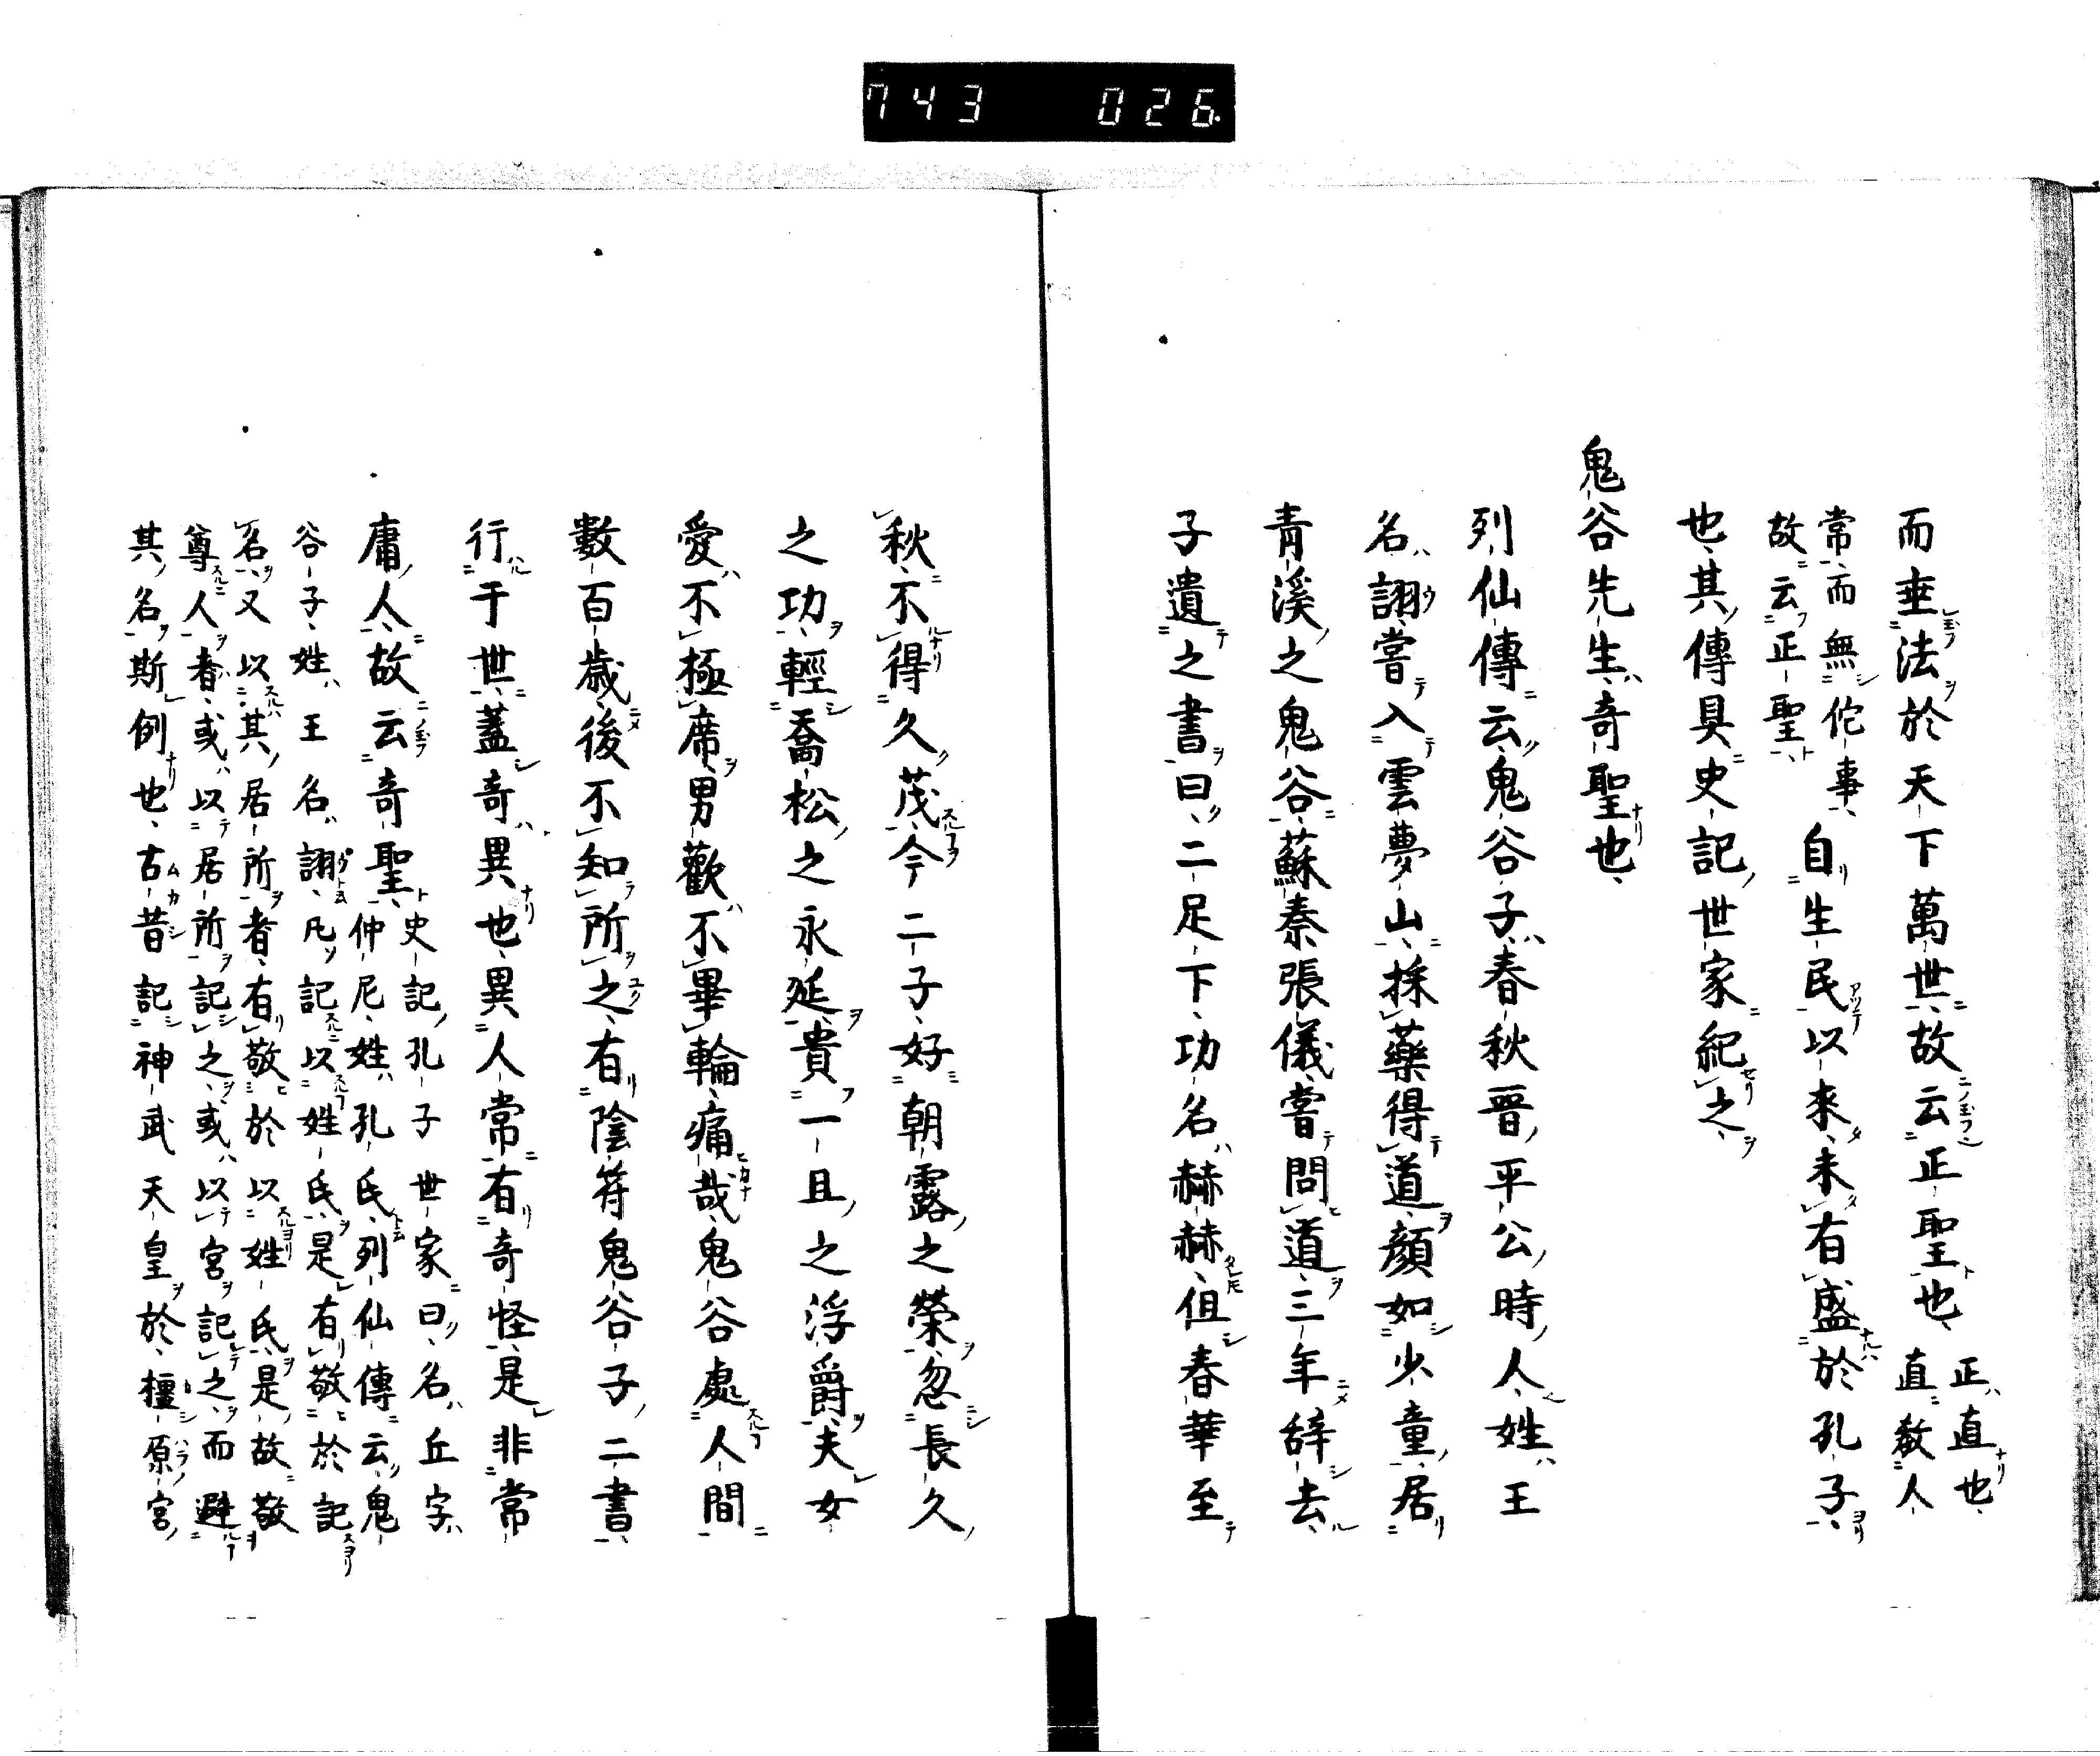 743 026.
而垂法於天下萬世故云正聖也正直也
直教人
常而無佗事
故云正聖
自生民以来未有盛於孔子
也其傳具史記世家紀之
鬼谷先生奇聖也
列仙傳云鬼谷子春秋晋平公時人姓王
名詡嘗入雲夢山採藥得道顔如少童居
青溪之鬼谷蘇秦張儀嘗問道三年辞去
子遺之書曰二足下功名赫赫但春華至
秋不得久茂今二子好朝露之榮忽長久
之功輕喬松之永延貴一旦之浮爵夫女
愛不極席男歡不畢輪痛哉鬼谷處人間
數百歳後不知所之有陰符鬼谷子二書
行于世蓋奇異也異人常有奇怪是非常
庸人故云奇聖
史記孔子世家曰名丘字
仲尼姓孔氏列仙傳云鬼
谷子姓王名詡凡記以姓氏是有敬於記
名又以其居所者有敬於以姓氏是故敬
尊人者或以居所記之或以宮記之而避
其名斯例也古昔記神武天皇於橿原宮